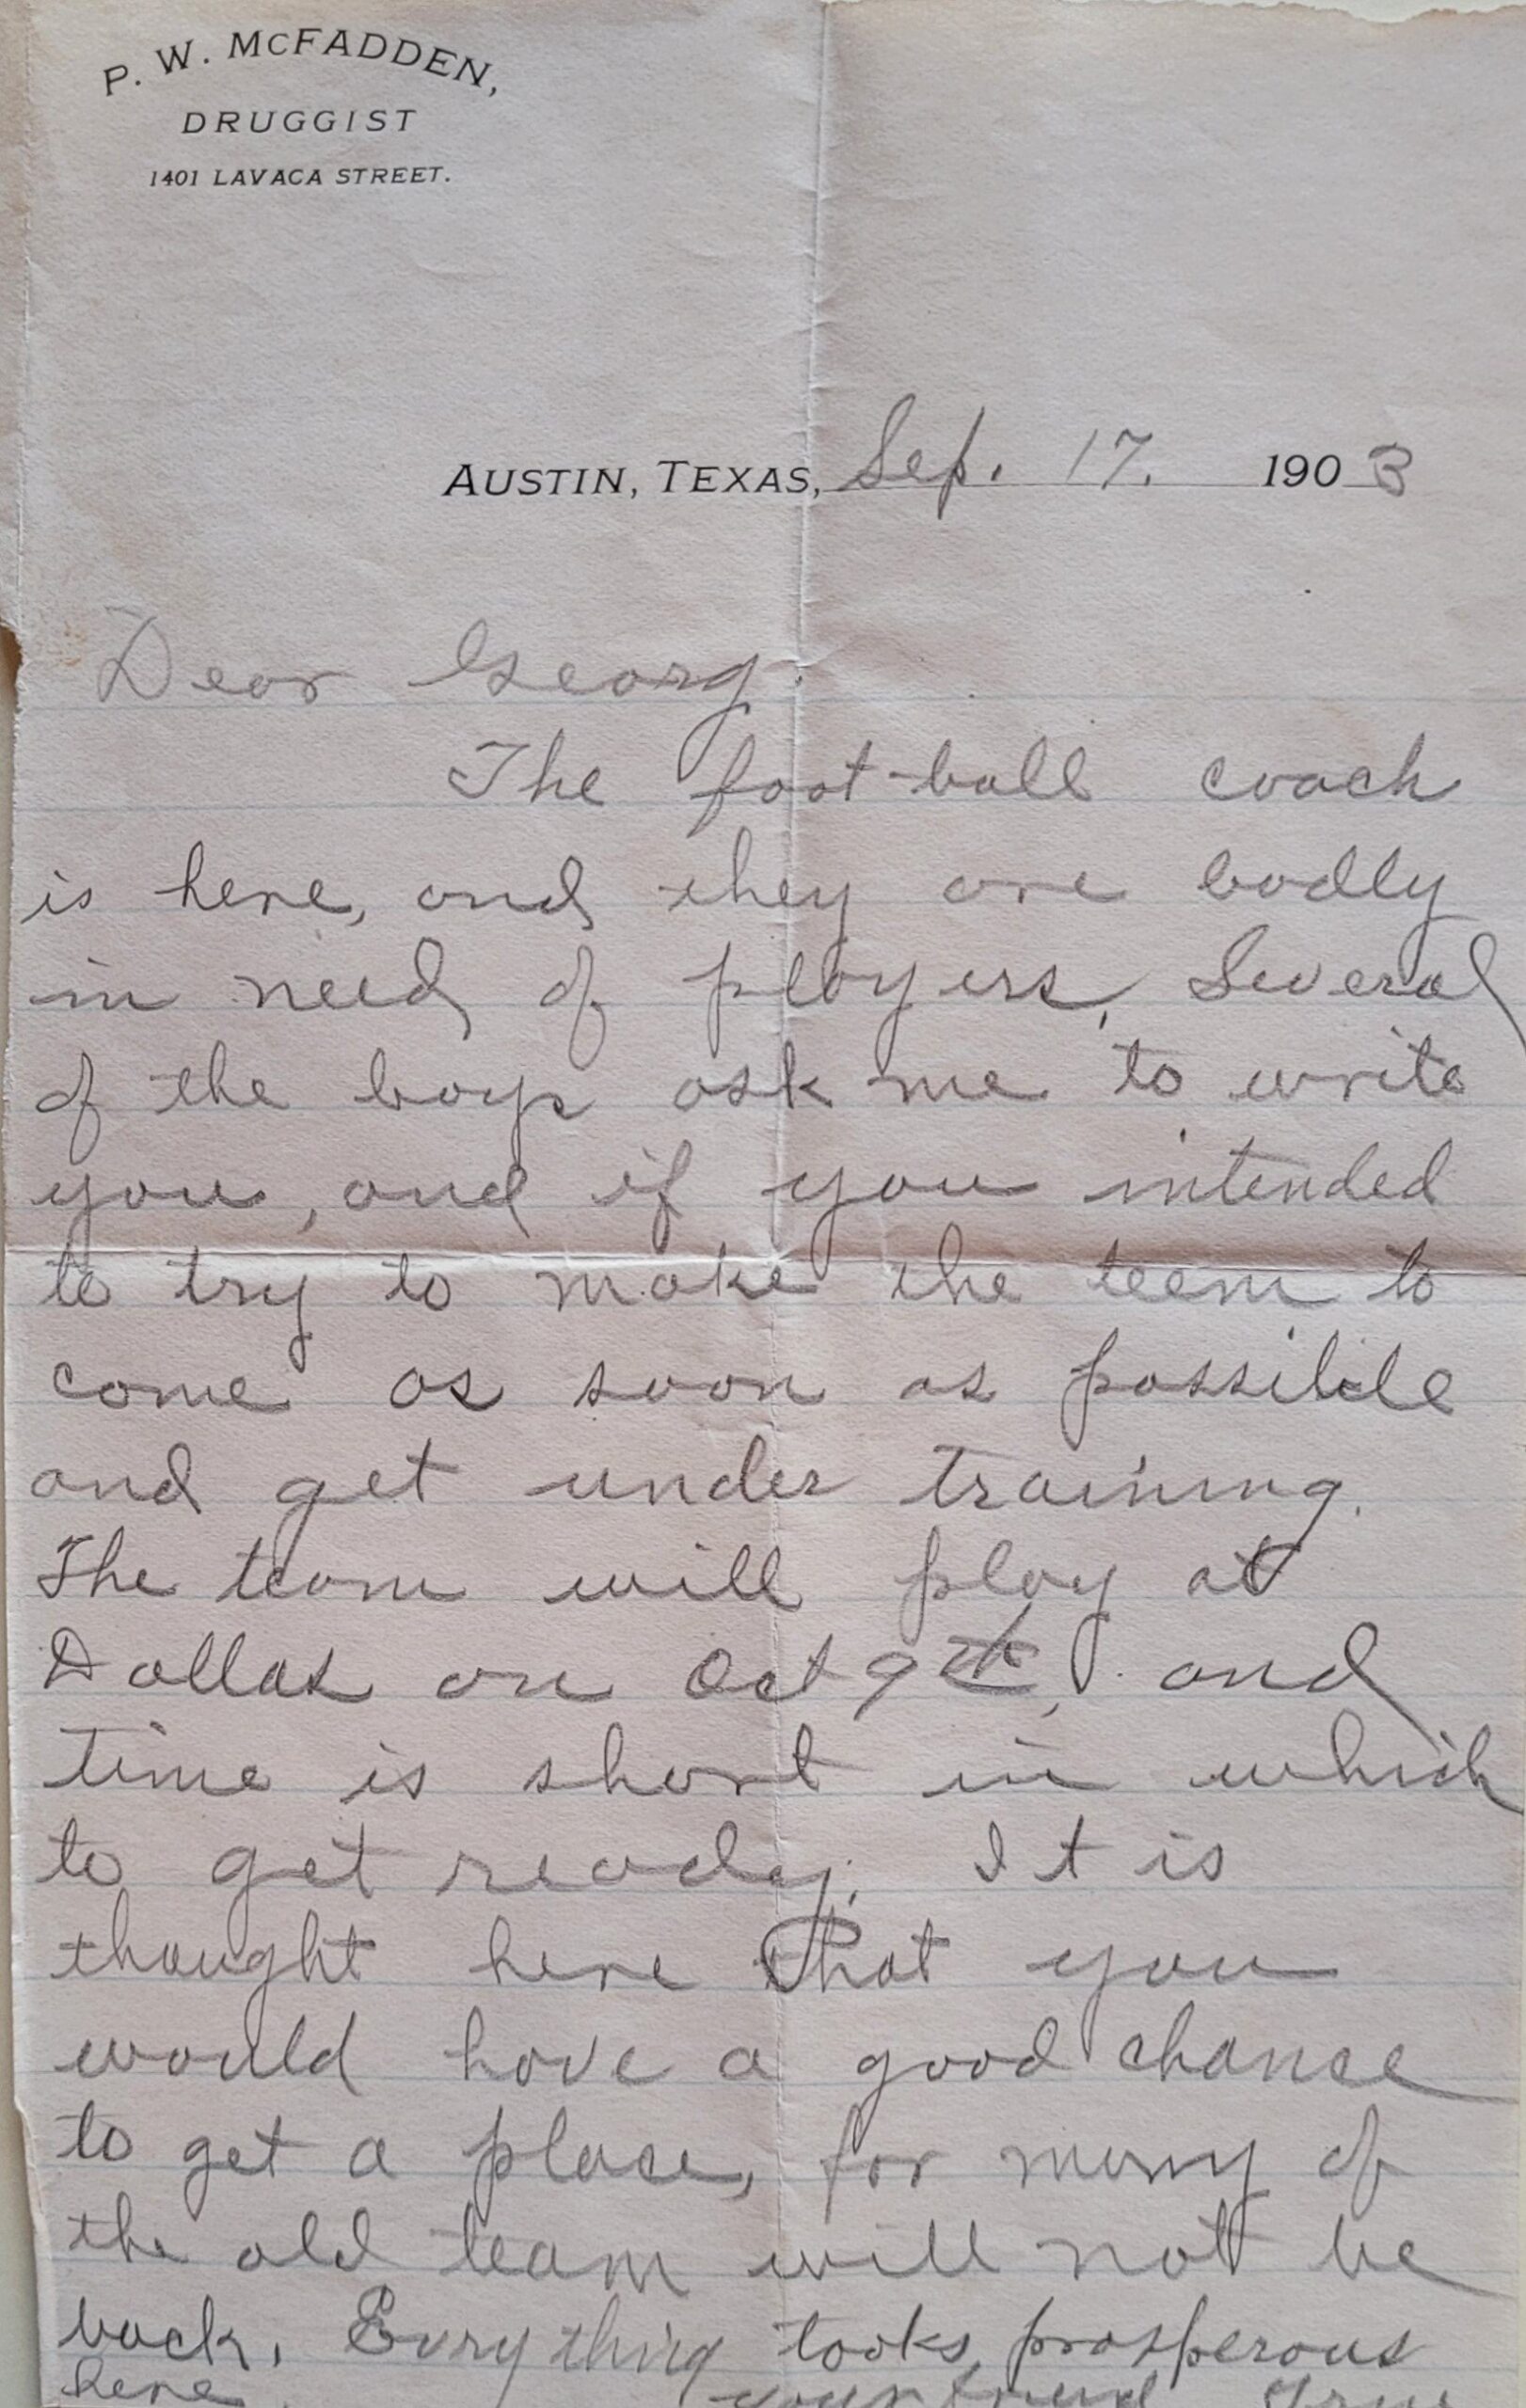 P. W. McFADDEN,
DRUGGIST
1401 LAVACA STREET.
AUSTIN, TEXAS, Sep. 17. 1903
Dear Georg.
The foot-ball coach
is here, and they are badly
in need of players, Several
of the boys ask me to write
you, and if you intended
to try to make the teem to
come as soon as possible
and get under training.
The team will play at
Dallas on Oct 9th, and
time is short in which
to get ready. It is
thought here that you
would have a good chance
to get a place, for many of
the old team will not be
back. Everything looks prosperous
here. your friend